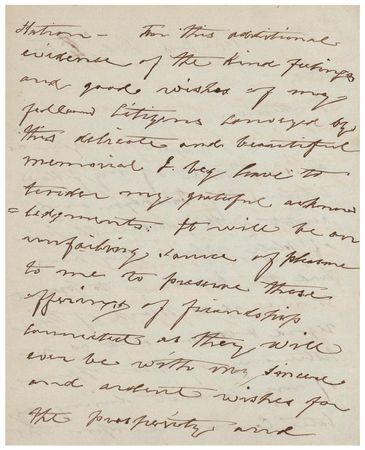 Hutson – For this additional
evidence of the kind feelings
and good wishes of my
fellow Citizens conveyed by
this delicate and beautiful
memorial I beg leave to
tender my grateful acknow
=ledgments: It will be an
unfailing source of pleasure
to me to preserve these
offerings of friendship
connected as they will
ever be with my sincere
and ardent wishes for
the prosperity and